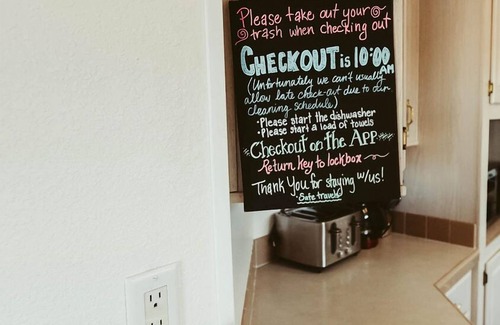 Please take out your
trash when checking out
CHECKOUT is 10:00 AM
(Unfortunately we can't usually
allow late check-out due to our
cleaning schedule)
• Please start the dishwasher
• Please start a load of towels
Checkout on the APP
Return key to lockbox
Thank You for staying w/us!
• Safe travels